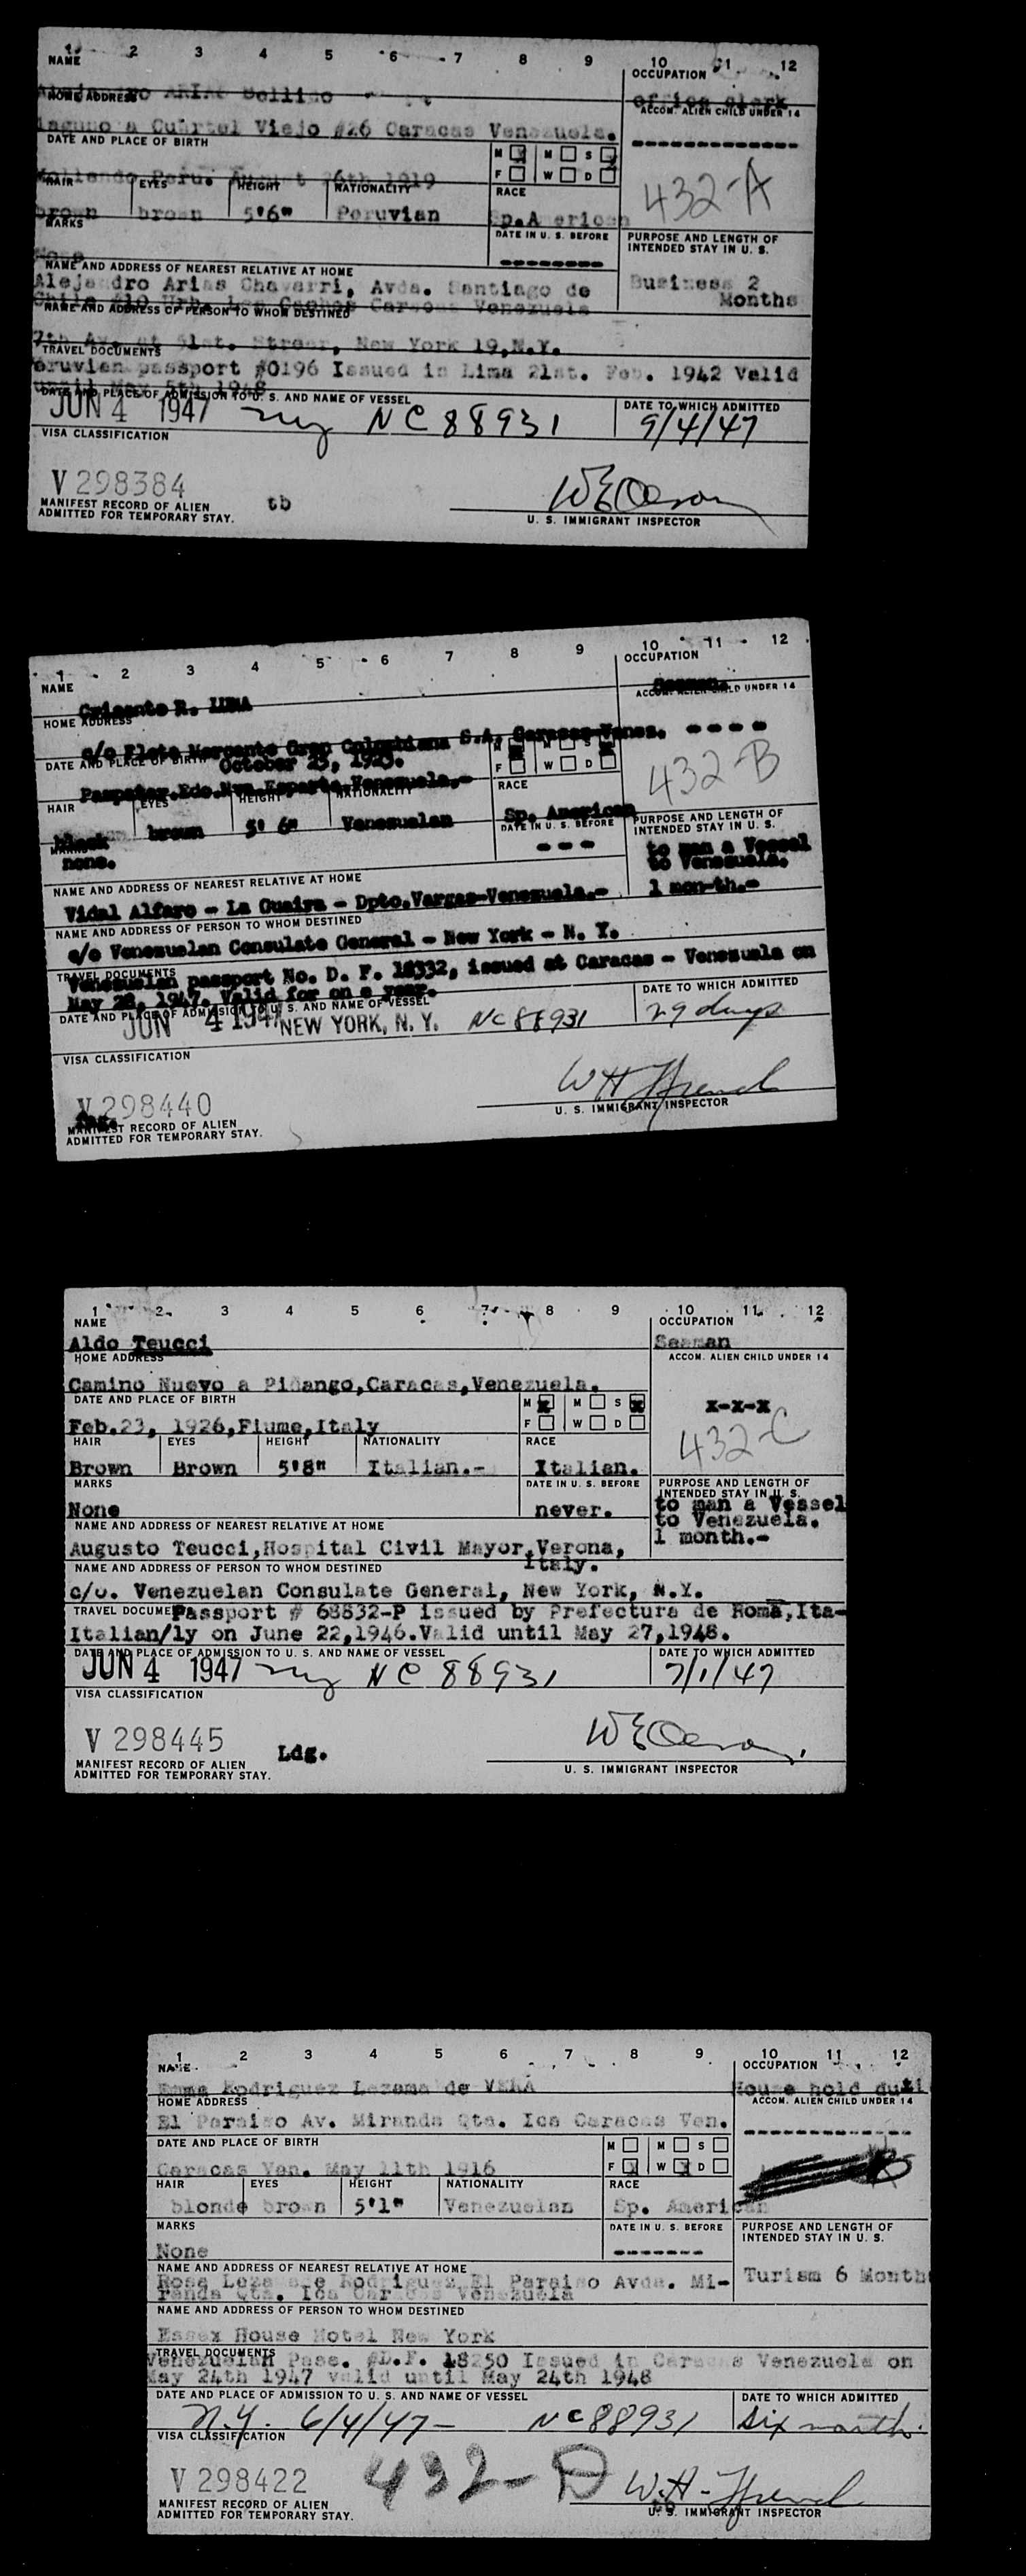 1 2 3 4 5 6 7 8 9 10 11 12
NAME OCCUPATION
ARIAS Bellido office clerk
HOME ADDRESS ACCOM. ALIEN CHILD UNDER 14
laguno a Cuartel Viejo #26 Caracas Venezuela.
DATE AND PLACE OF BIRTH M M S
F W D
Mollendo Peru. August 26th 1919
432-A
HAIR EYES HEIGHT NATIONALITY RACE
brown brown 5'6" Peruvian Sp.American
MARKS DATE IN U. S. BEFORE PURPOSE AND LENGTH OF
INTENDED STAY IN U. S.
None
NAME AND ADDRESS OF NEAREST RELATIVE AT HOME
Alejandro Arias Chavarri, Avda. Santiago de Business 2
Chile #10 Urb. Los Caobos Caracas Venezuela Months
NAME AND ADDRESS OF PERSON TO WHOM DESTINED
7th Av. at 51st. Street, New York 19,N.Y.
TRAVEL DOCUMENTS
Peruvian passport #0196 Issued in Lima 21st. Feb. 1942 Valid
until May 5th 1948
DATE AND PLACE OF ADMISSION TO U. S. AND NAME OF VESSEL DATE TO WHICH ADMITTED
JUN 4 1947 ny NC 88931 9/4/47
VISA CLASSIFICATION
V 298384
MANIFEST RECORD OF ALIEN tb
ADMITTED FOR TEMPORARY STAY. U. S. IMMIGRANT INSPECTOR
1 2 3 4 5 6 7 8 9 10 11 12
NAME OCCUPATION
R. LUNA Seaman.
HOME ADDRESS ACCOM. ALIEN CHILD UNDER 14
c/o Flota Mercante Gran Colombiana S.A. Caracas-Venez.
DATE AND PLACE OF BIRTH October 25, 1923. M M S
F W D
Pampatar.Edo.Nva.Esparta.Venezuela,-
432-B
HAIR EYES HEIGHT NATIONALITY RACE
black brown 5' 6" Venezuelan Sp. American
MARKS DATE IN U. S. BEFORE PURPOSE AND LENGTH OF
INTENDED STAY IN U. S.
none. to man a Vessel
to Venezuela.
NAME AND ADDRESS OF NEAREST RELATIVE AT HOME 1 mon-th.-
Vidal Alfaro - La Guaira - Dpto.Vargas-Venezuela.-
NAME AND ADDRESS OF PERSON TO WHOM DESTINED
c/o Venezuelan Consulate General - New York - N. Y.
TRAVEL DOCUMENTS
Venezuelan passport No. D. F. 18332, issued at Caracas - Venezuela on
May 28, 1947. Valid for on e year.
DATE AND PLACE OF ADMISSION TO U. S. AND NAME OF VESSEL DATE TO WHICH ADMITTED
JUN 4 1947 NEW YORK, N. Y. NC 88931 29 days
VISA CLASSIFICATION
V 298440
MANIFEST RECORD OF ALIEN
ADMITTED FOR TEMPORARY STAY. U. S. IMMIGRANT INSPECTOR
1 2 3 4 5 6 7 8 9 10 11 12
NAME OCCUPATION
Aldo Teucci Seaman
HOME ADDRESS ACCOM. ALIEN CHILD UNDER 14
Camino Nuevo a Piñango,Caracas,Venezuela.
DATE AND PLACE OF BIRTH M M S x-x-x
F W D
Feb.23, 1926,Fiume,Italy
432-C
HAIR EYES HEIGHT NATIONALITY RACE
Brown Brown 5'8" Italian.- Italian.
MARKS DATE IN U. S. BEFORE PURPOSE AND LENGTH OF
INTENDED STAY IN U. S.
None never. to man a Vessel
to Venezuela.
NAME AND ADDRESS OF NEAREST RELATIVE AT HOME 1 month.-
Augusto Teucci,Hospital Civil Mayor,Verona,
Italy.
NAME AND ADDRESS OF PERSON TO WHOM DESTINED
c/o. Venezuelan Consulate General, New York, N.Y.
TRAVEL DOCUME Passport # 68832-P issued by Prefectura de Roma,Ita-
Italian/ly on June 22,1946.Valid until May 27,1948.
DATE AND PLACE OF ADMISSION TO U. S. AND NAME OF VESSEL DATE TO WHICH ADMITTED
JUN 4 1947 ny NC 88931 7/1/47
VISA CLASSIFICATION
V 298445 Ldg.
MANIFEST RECORD OF ALIEN
ADMITTED FOR TEMPORARY STAY. U. S. IMMIGRANT INSPECTOR
1 2 3 4 5 6 7 8 9 10 11 12
NAME OCCUPATION
Emma Rodriguez Lezama de VERA House hold duti
HOME ADDRESS ACCOM. ALIEN CHILD UNDER 14
El Paraiso Av. Miranda Qta. Ica Caracas Ven.
DATE AND PLACE OF BIRTH M M S
F W D
Caracas Ven. May 11th 1916
HAIR EYES HEIGHT NATIONALITY RACE
blonde brown 5'1" Venezuelan Sp. American
MARKS DATE IN U. S. BEFORE PURPOSE AND LENGTH OF
INTENDED STAY IN U. S.
None
NAME AND ADDRESS OF NEAREST RELATIVE AT HOME
Rosa Lezama de Rodriguez El Paraiso Avda. Mi- Turism 6 Month
randa Qta. Ica Caracas Venezuela
NAME AND ADDRESS OF PERSON TO WHOM DESTINED
Essex House Hotel New York
TRAVEL DOCUMENTS
Venezuelan Pass. #D.F. 18250 Issued in Caracas Venezuela on
May 24th 1947 valid until May 24th 1948
DATE AND PLACE OF ADMISSION TO U. S. AND NAME OF VESSEL DATE TO WHICH ADMITTED
N.Y. 6/4/47- NC 88931 Six months.
VISA CLASSIFICATION
V 298422 432-D
MANIFEST RECORD OF ALIEN
ADMITTED FOR TEMPORARY STAY. U. S. IMMIGRANT INSPECTOR